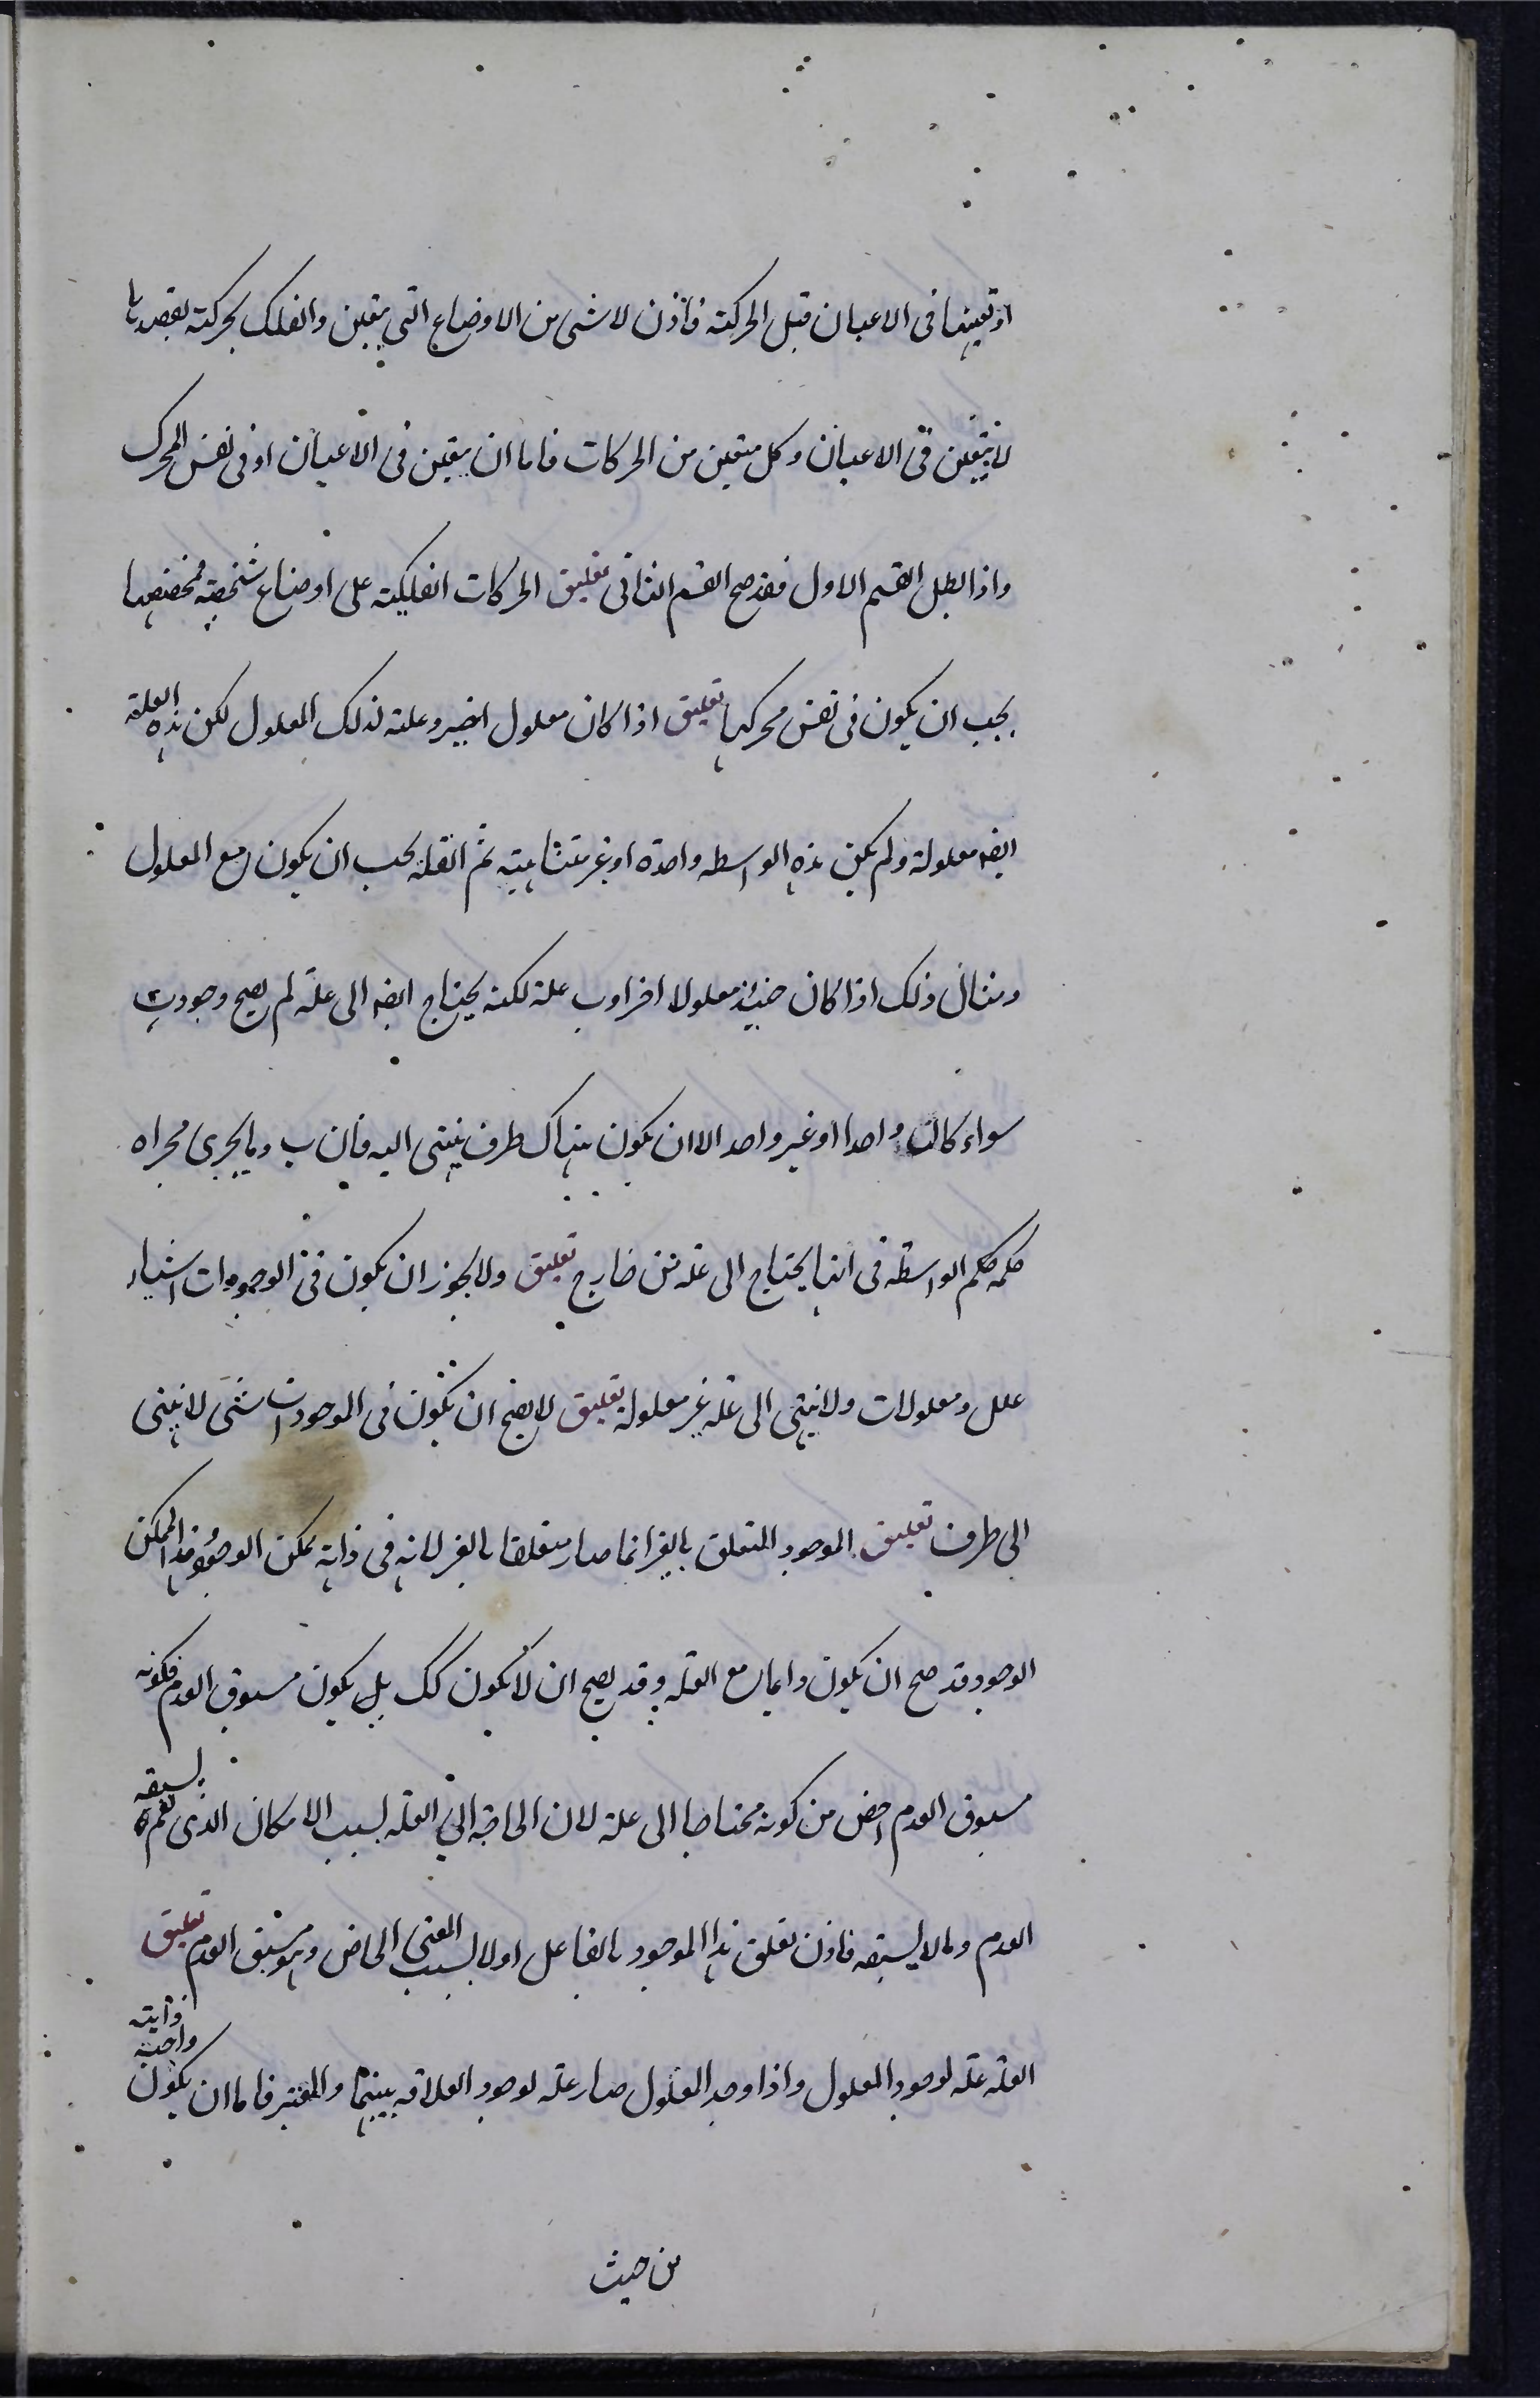 او تعينها فى الاعيان قبل الحركته فاذن لا شى من الاوضاع التى يتعين والفلك بحركته يقصدها
لا يتعين فى الاعيان وكل متعين من الحركات فاما ان يتعين فى الاعيان او فى نفس المحرك
واذا بطل القسم الاول فقد صح القسم الثانى تعليق الحركات الفلكيته على اوضاع شخصيته مخصصها
يجب ان يكون فى نفس محركها تعليق اذا كان معلول اخير وعلته لذلك المعلول لكن هذه العلته
ايضه معلولة ولم يكن هذه الواسطه واحدة او غير متناهيته ثم العله يجب ان يكون مع المعلول
ومثال ذلك اذا كان حينئذ معلولا اخر او ب علته لكنه يحتاج ايضه الى علة لم يصح وجود ب
سواء كان واحدا او غير واحد الا ان يكون هناك طرف ينتهى اليه فان ب وما يجرى مجراه
حكمه حكم الواسطة فى انها يحتاج الى عله من خارج تعليق ولا يجوز ان يكون فى الوجودات اشياء
علل ومعلولات ولا ينتهى الى علة غير معلولة تعليق لا يصح ان يكون فى الموجودات شى لا ينتهى
الى طرف تعليق الموجود المتعلق بالغير انما صار متعلقا بالغير لانه فى ذاته ممكن الوجود وهذا الممكن
الوجود قد صح ان يكون دايما مع العله وقد يصح ان لا يكون كك بل يكون مسبوق العدم فكونه
مسبوق العدم اخص من كونه محتاجا الى علة لان الحاجة الى العله بسبب الامكان الذى يعم ما يسبقه
العدم وما لا يسبقه فاذن تعلق هذا الموجود بالفاعل اولا بسبب المعنى الخاص وهو سبق العدم تعليق
العله علة لوجود المعلول واذا وجد المعلول صار علة لوجود العلاقه بينهما والمعتبر فاما ان يكون ذاتيه واجبة
من حيث